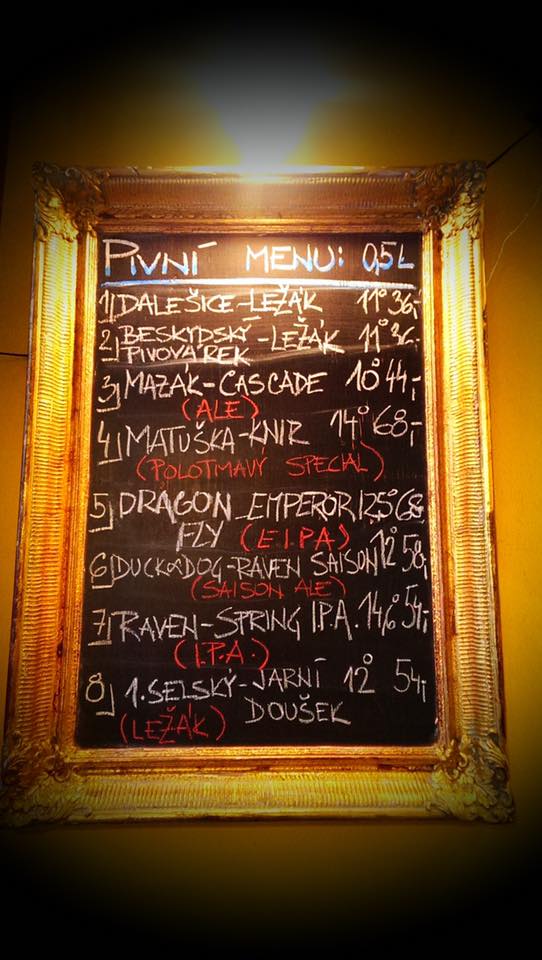 PIVNÍ MENU: 0,5L
1) DALEŠICE-LEŽÁK 11° 36,-
2) BESKYDSKÝ -LEŽÁK 11° 36,-
PIVOVÁREK
3) MAZÁK-CASCADE 10° 44,-
(ALE)
4) MATUŠKA-KNIR 14° 68,-
(POLOTMAVÝ SPECIAL)
5) DRAGON EMPEROR 12,5° 68,-
FLY (E.I.P.A.)
6) DUCK&DOG-RAVEN SAISON 12° 58,-
(SAISON ALE)
7) RAVEN-SPRING I.P.A. 14,6° 54,-
(I.P.A.)
8) 1.SELSKÝ-JARNÍ 12° 54,-
DOUŠEK
(LEŽÁK)